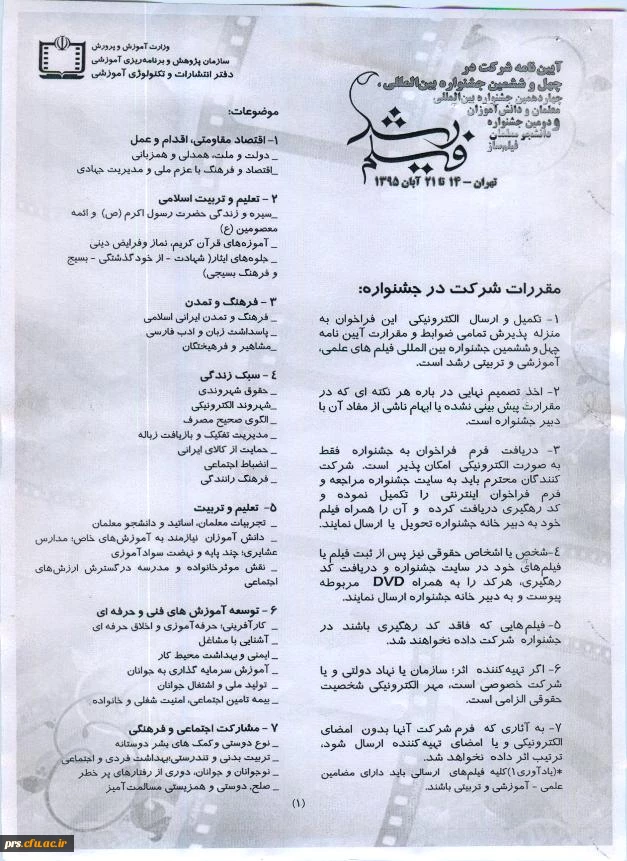 آیین نامه شرکت در
چهل و ششمین جشنواره بین‌المللی،
چهاردهمین جشنواره بین‌المللی
معلمان و دانش‌آموزان
و دومین جشنواره
دانشجو معلمان
فیلم‌ساز
فیلم رشد
تهران – ۱۴ تا ۲۱ آبان ۱۳۹۵
مقررات شرکت در جشنواره:
۱- تکمیل و ارسال الکترونیکی این فراخوان به
منزله پذیرش تمامی ضوابط و مقرارت آیین نامه
چهل و ششمین جشنواره بین المللی فیلم های علمی،
آموزشی و تربیتی رشد است.
۲- اخذ تصمیم نهایی در باره هر نکته ای که در
مقرارت پیش بینی نشده یا ابهام ناشی از مفاد آن با
دبیر جشنواره است.
۳- دریافت فرم فراخوان به جشنواره فقط
به صورت الکترونیکی امکان پذیر است. شرکت
کنندگان محترم باید به سایت جشنواره مراجعه و
فرم فراخوان اینترنتی را تکمیل نموده و
کد رهگیری دریافت کرده و آن را همراه فیلم
خود به دبیر خانه جشنواره تحویل یا ارسال نمایند.
۴-شخص یا اشخاص حقوقی نیز پس از ثبت فیلم یا
فیلم‌های خود در سایت جشنواره و دریافت کد
رهگیری، هرکد را به همراه DVD مربوطه
پیوست و به دبیر خانه جشنواره ارسال نمایند.
۵-فیلم‌هایی که فاقد کد رهگیری باشند در
جشنواره شرکت داده نخواهند شد.
۶- اگر تهیه‌کننده اثر؛ سازمان یا نهاد دولتی و یا
شرکت خصوصی است، مهر الکترونیکی شخصیت
حقوقی الزامی است.
۷- به آثاری که فرم شرکت آنها بدون امضای
الکترونیکی و یا امضای تهیه‌کننده ارسال شود،
ترتیب اثر داده نخواهد شد.
*(یادآوری۱)کلیه فیلم‌های ارسالی باید دارای مضامین
علمی - آموزشی و تربیتی باشند.
وزارت آموزش و پرورش
سازمان پژوهش و برنامه‌ریزی آموزشی
دفتر انتشارات و تکنولوژی آموزشی
موضوعات:
۱- اقتصاد مقاومتی، اقدام و عمل
_ دولت و ملت، همدلی و همزبانی
_اقتصاد و فرهنگ با عزم ملی و مدیریت جهادی
۲ - تعلیم و تربیت اسلامی
_سیره و زندگی حضرت رسول اکرم (ص) و ائمه
معصومین (ع)
_ آموزه‌های قرآن کریم، نماز وفرایض دینی
_ جلوه‌های ایثار( شهادت - از خود گذشتگی - بسیج
و فرهنگ بسیجی)
۳ - فرهنگ و تمدن
_ فرهنگ و تمدن ایرانی اسلامی
_ پاسداشت زبان و ادب فارسی
_مشاهیر و فرهیختگان
۴ - سبک زندگی
_ حقوق شهروندی
_شهروند الکترونیکی
_ الگوی صحیح مصرف
_ مدیریت تفکیک و بازیافت زباله
_ حمایت از کالای ایرانی
_ انضباط اجتماعی
_ فرهنگ رانندگی
۵- تعلیم و تربیت
_ تجربیات معلمان، اساتید و دانشجو معلمان
_ دانش آموزان نیازمند به آموزش‌های خاص؛ مدارس
عشایری؛ چند پایه و نهضت سوادآموزی
_ نقش موثرخانواده و مدرسه درگسترش ارزش‌های
اجتماعی
۶ - توسعه آموزش های فنی و حرفه ای
_ کارآفرینی؛ حرفه‌آموزی و اخلاق حرفه ای
_ آشنایی با مشاغل
_ ایمنی و بهداشت محیط کار
_ آموزش سرمایه گذاری به جوانان
_ تولید ملی و اشتغال جوانان
_ بیمه تامین اجتماعی، امنیت شغلی و خانواده
۷ - مشارکت اجتماعی و فرهنگی
_ نوع دوستی وکمک های بشر دوستانه
_ تربیت بدنی و تندرستی،بهداشت فردی و اجتماعی
_ نوجوانان و جوانان، دوری از رفتارهای پر خطر
_ صلح, دوستی و همزیستی مسالمت‌آمیز
(۱)
prs.cfu.ac.ir